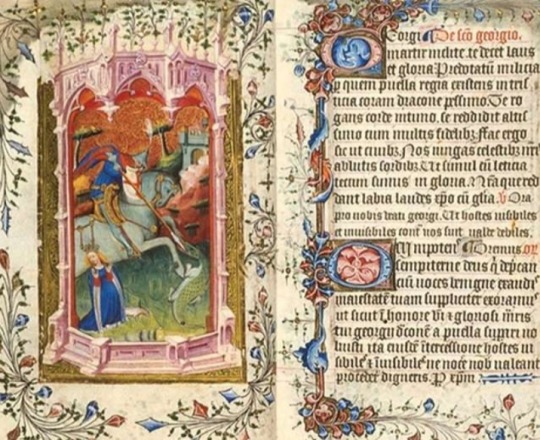 Georgi De scō georgio.
martir inclite. te decet laus
et gloria Predotatū milicia
p quem puella regia existens in tris
ticia coram dracone pessimo. Te ro
gans corde intimo. se reddidit altis
simo cum multis fidelibꝫ ffac ergo
sic ut cunbꝫ Nos iungas celestibꝫ
ablutis sordibꝫ Ut simul cū leticia
tecum simus in gloria. Nr̄aque red
dant labia laudes xp̄o cū glia. v̄ Ora
pro nobis beati georgi. Ut hostes uisibiles
et inuisibiles cont̄ nos sint ualde debiles.
Omnipotens
sempiterne deus q̄ dep̄can
cīū uoces benigne exaudis
maiestatē tuam suppliciter exoramꝰ
ut sicut ī honore bī ⁊ gloriosi m̄ris
tui georgii
uisti ita eiusdē īt̄cessione hostes ui
sibiles ⁊ īuisibiles ne nocē nob ualeant
p̄cedē digneris. P xp̄m